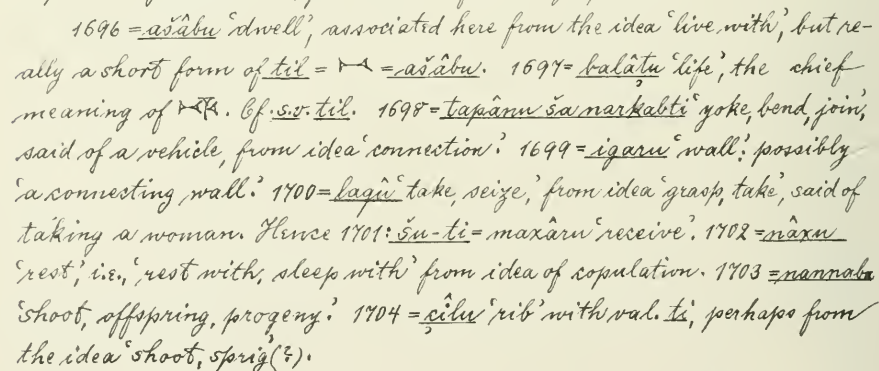 1696 = ašâbu 'dwell', associated here from the idea 'live with', but re-
ally a short form of til = 𒁁 = ašâbu. 1697 = balâṭu 'life', the chief
meaning of . Cf. s.v. til. 1698 = tapânu ša narkabti 'yoke, bend, join,'
said of a vehicle, from idea 'connection'. 1699 = igaru 'wall'; possibly
'a connecting wall'. 1700 = laqû 'take, seize,' from idea 'grasp, take', said of
taking a woman. Hence 1701: šu-ti = maxâru 'receive'. 1702 = nâxu
'rest,' i.e., 'rest with, sleep with' from idea of copulation. 1703 = nannabu
'shoot, offspring, progeny'. 1704 = çîlu 'rib' with val. ti, perhaps from
the idea 'shoot, sprig' (?).